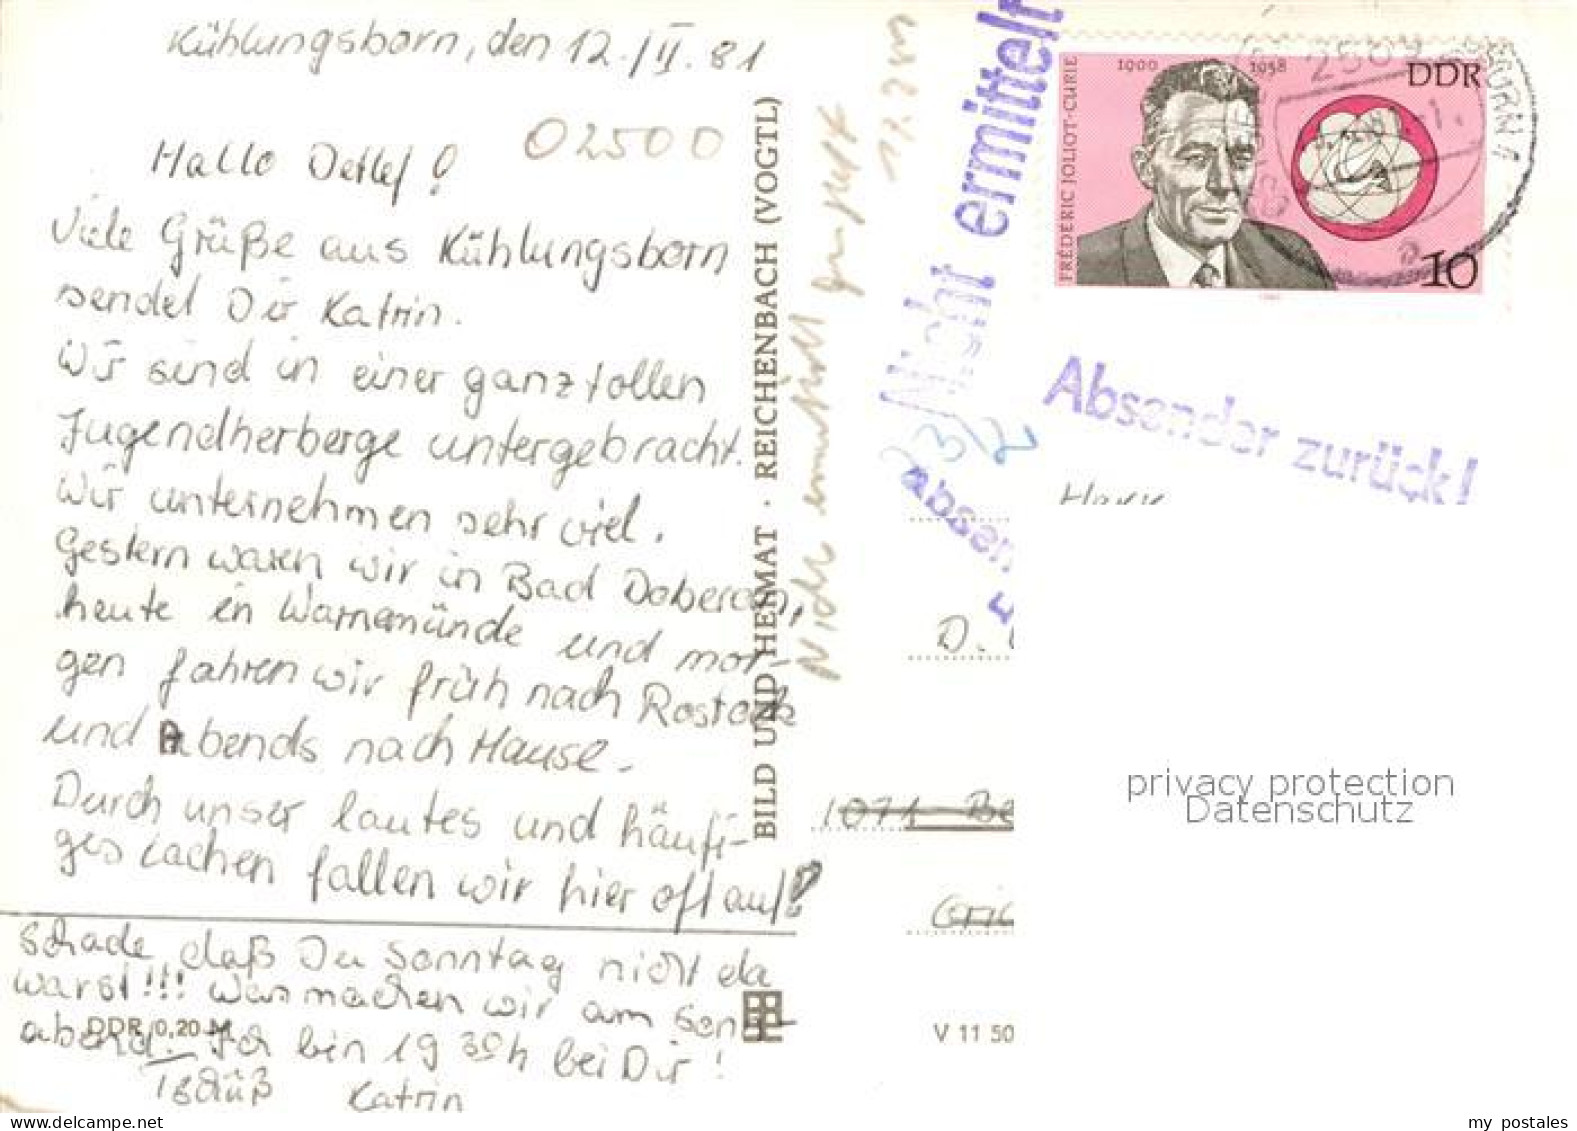 Kühlungsborn, den 12./II. 81
02500
Hallo Detlef!
Viele Grüße aus Kühlungsborn
sendet Dir Katrin.
Wir sind in einer ganz tollen
Jugendherberge untergebracht.
Wir unternehmen sehr viel.
Gestern waren wir in Bad Doberan,
heute in Warnemünde und mor-
gen fahren wir früh nach Rostock
und Abends nach Hause.
Durch unser lautes und häufi-
ges Lachen fallen wir hier oft auf!
Schade, daß Du Sonntag nicht da
warst!!! Was machen wir am Sonn-
abend. Ich bin 19 30h bei Dir!
Tschüß Katrin
DDR 0,20 M
BILD UND HEIMAT · REICHENBACH (VOGTL)
Nicht ermittelt
Absender zurück!
23/2
absen
1900 1958 DDR
FRÉDÉRIC JOLIOT-CURIE
10
Herr
D.
1071 Be
V 11 50
privacy protection
Datenschutz
my postales